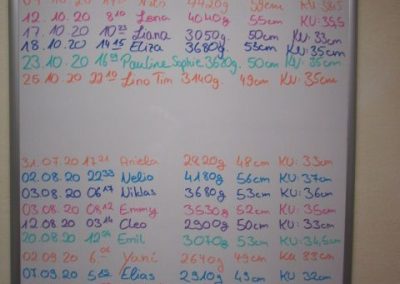 12.10.20 8¹⁰ Lena 4040g 55cm KU: 35,5
17.10.20 10²³ Liana 3050g 50cm KU: 33cm
18.10.20 14¹⁵ Eliza 3680g 53cm KU: 35cm
23.10.20 Pauline Sophie 50cm KU: 35cm
26.10.20 22¹⁰ Lino Tim 3140g 49cm KU: 35cm
31.07.20 17²¹ 2820g 48cm KU: 33cm
02.08.20 22³³ Nelio 4180g 56cm KU: 37cm
03.08.20 06¹⁷ Niklas 3680g 53cm KU: 36cm
03.08.20 08¹² Emmy 3530g 52cm KU: 35cm
12.08.20 03¹⁴ Cleo 2900g 50cm KU: 33cm
20.08.20 Emil 3070g 53cm KU: 34,5cm
02.09.20 Yani 2640g 49cm KU: 33cm
07.09.20 5⁰² Elias 2910g 49cm KU: 32cm